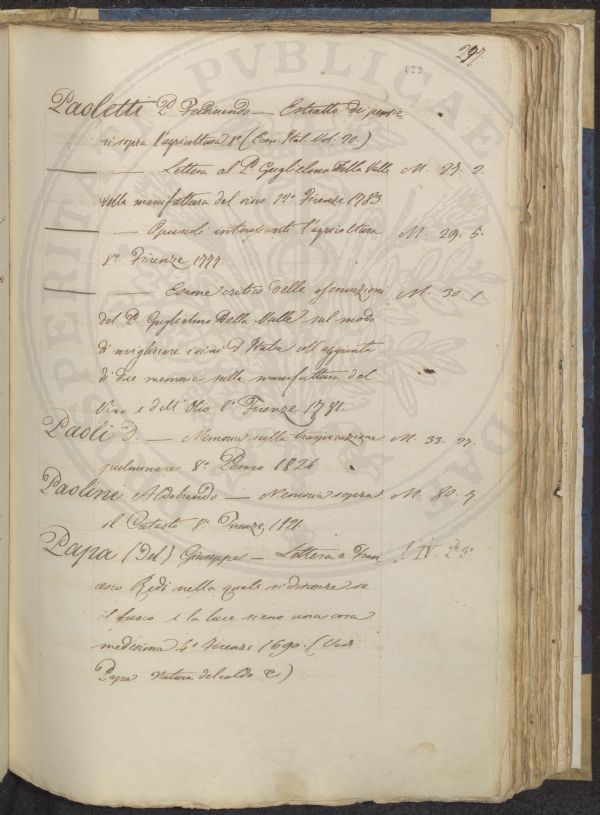 297.
Paoletti P. Ferdinando — Estratto de' pensie-
ri sopra l'agricoltura 8° (Econ. Ital. Vol. 20)
— — Lettera al P. Guglielmo Della Valle M. 27. 2.
della manifattura del vino 12° Firenze 1783
— — Opuscoli interessanti l'agricoltura M. 29. 5.
8° Firenze 1777.
— — Esame critico delle osservazioni M. 30. 1.
del P. Guglielmo Della Valle sul modo
di migliorare i vini d'Italia coll'aggiunta
di due memorie sulla manifattura del
Vino e dell'Olio 8° Firenze 1781.
Paoli D. — Memoria sulla traspirazione M. 33. 27.
pulmonare 8° Pesaro 1826
Paolini Aldobrando — Memoria sopra M. 80. 7
il Catasto 8° Firenze 1821.
Papa (Del) Giuseppe — Lettera a Fran IV. 2. 3°
cesco Redi nella quale si discorre se
il fuoco e la luce sieno una cosa
medesima Firenze 1690. (Vedi
Papa Natura del caldo &c)
PROSPERITATI PVBLICAE